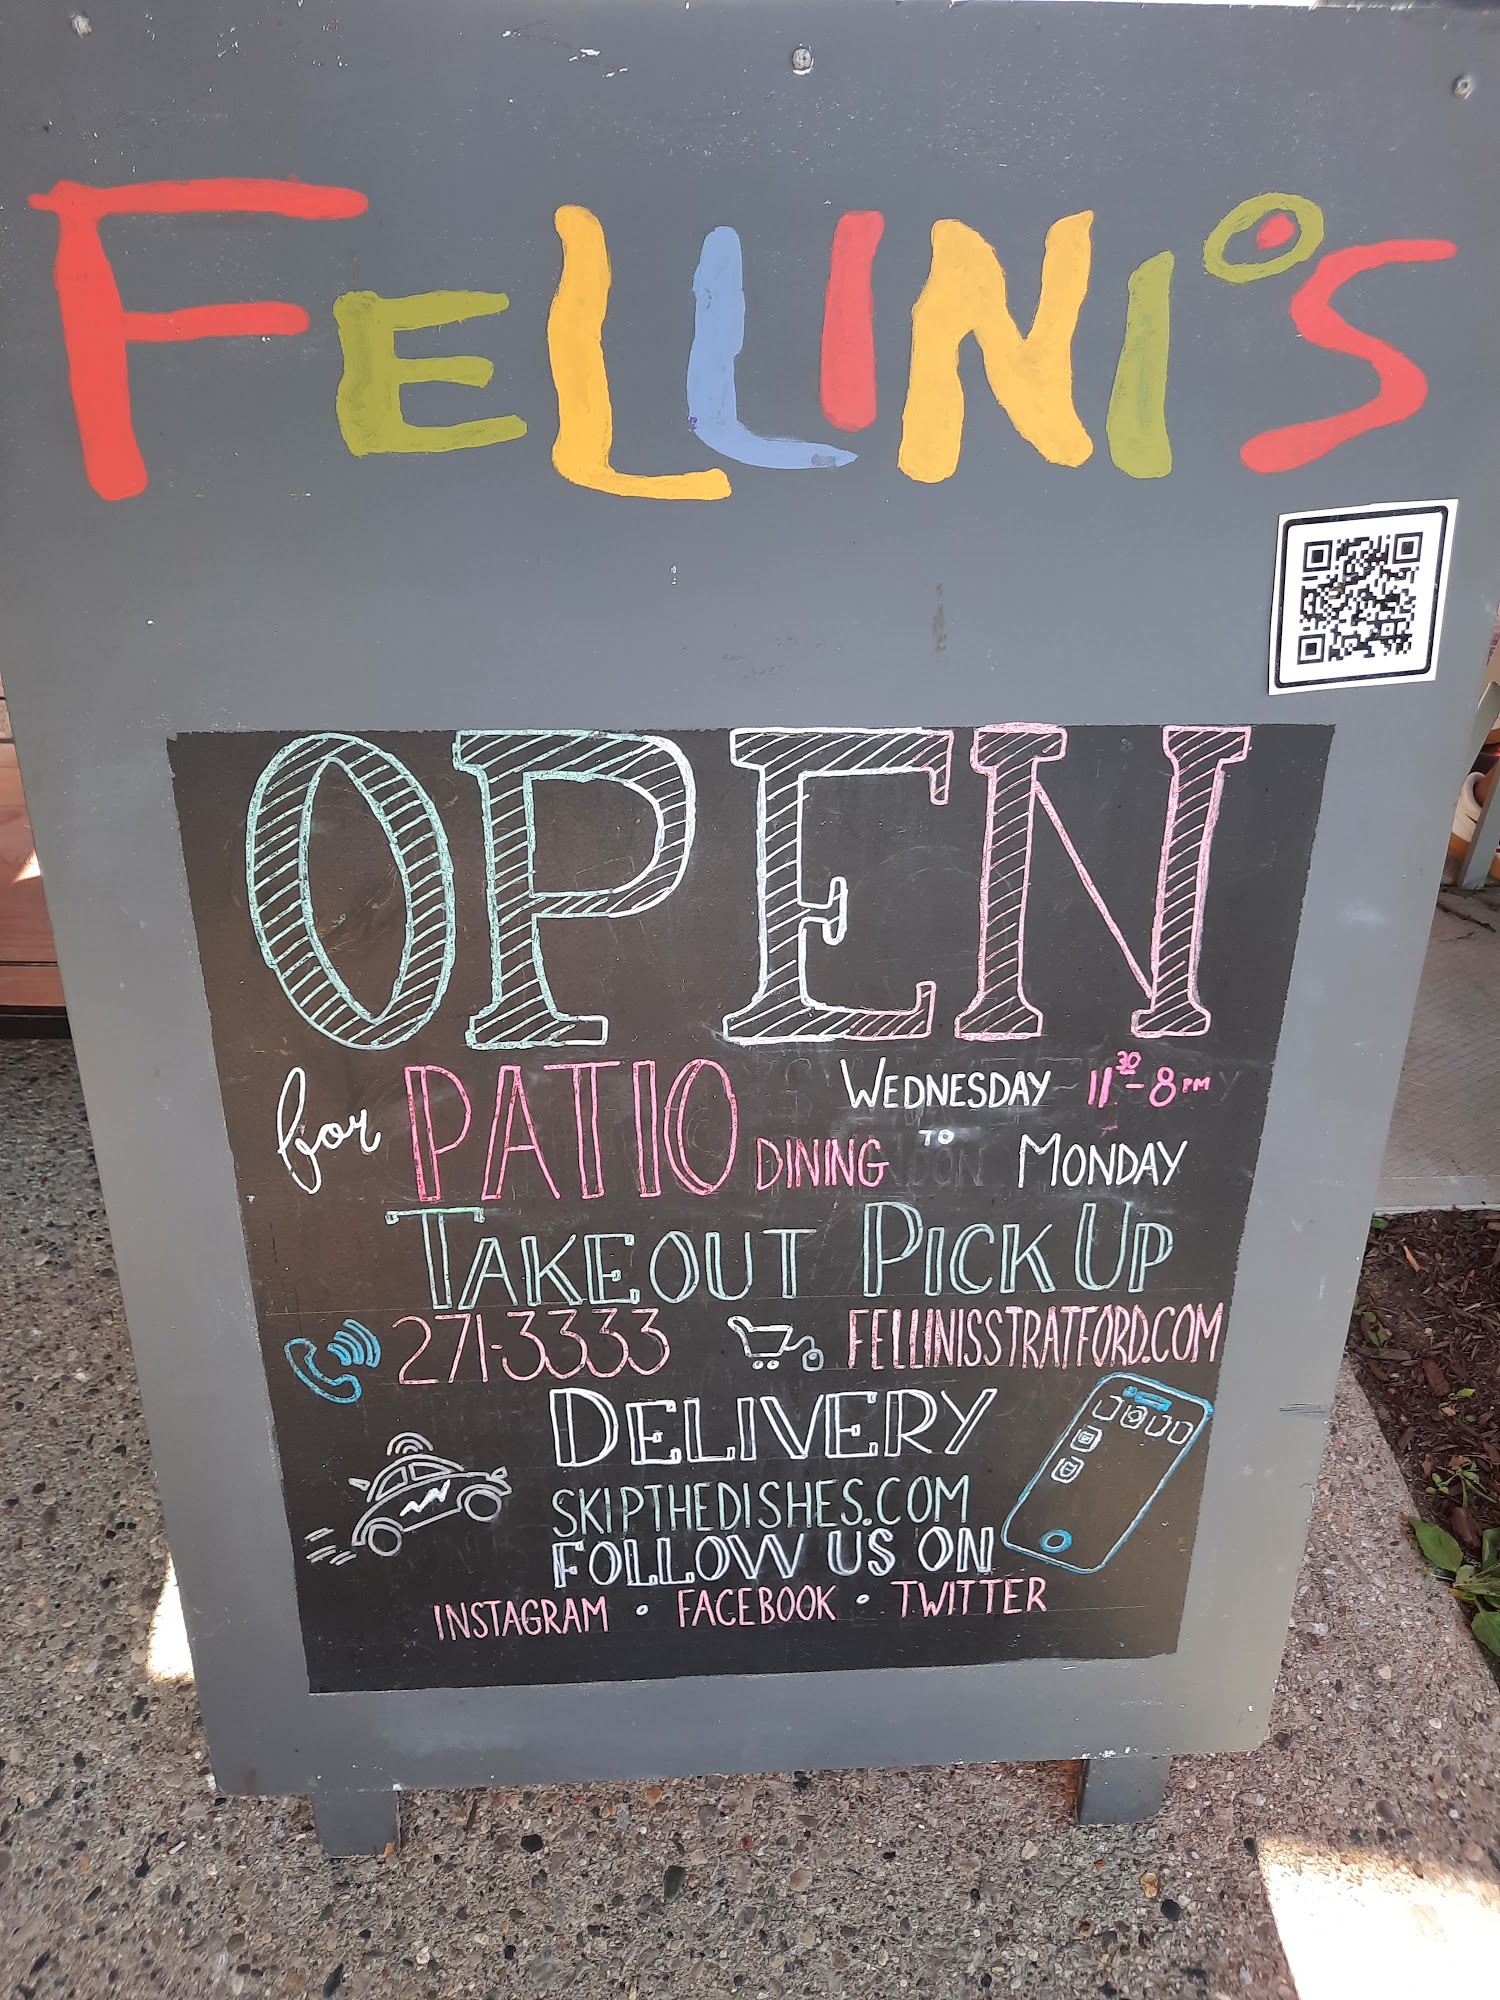 FELLINI'S
OPEN
for PATIO DINING
WEDNESDAY 11³⁰-8PM
TO MONDAY
TAKEOUT PICK UP
271-3333 FELLINISSTRATFORD.COM
DELIVERY
SKIPTHEDISHES.COM
FOLLOW US ON
INSTAGRAM • FACEBOOK • TWITTER